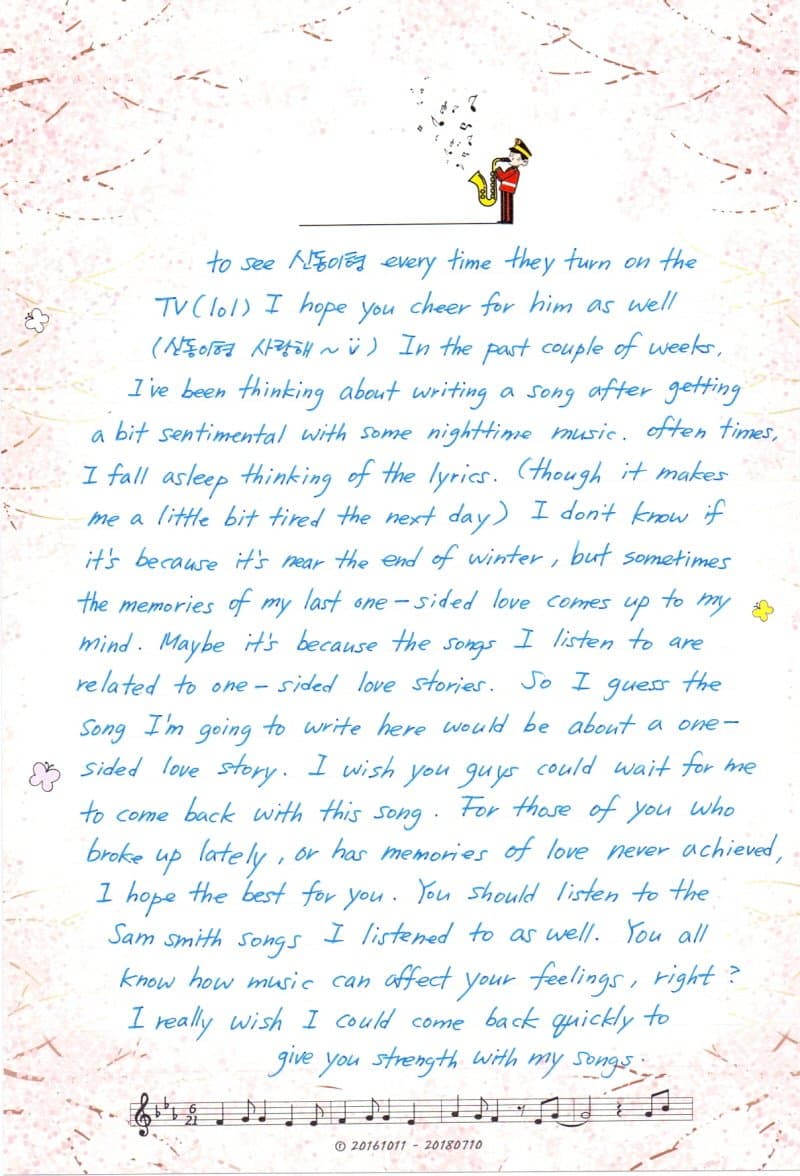 to see 신동이형 every time they turn on the
TV(lol) I hope you cheer for him as well
(신동이형 사랑해~ü) In the past couple of weeks,
I've been thinking about writing a song after getting
a bit sentimental with some nighttime music. often times,
I fall asleep thinking of the lyrics. (though it makes
me a little bit tired the next day) I don't know if
it's because it's near the end of winter, but sometimes
the memories of my last one-sided love comes up to my
mind. Maybe it's because the songs I listen to are
related to one-sided love stories. So I guess the
song I'm going to write here would be about a one-
sided love story. I wish you guys could wait for me
to come back with this song. For those of you who
broke up lately, or has memories of love never achieved,
I hope the best for you. You should listen to the
Sam smith songs I listened to as well. You all
know how music can affect your feelings, right?
I really wish I could come back quickly to
give you strength with my songs.
6
21
ⓒ 20161011 - 20180710